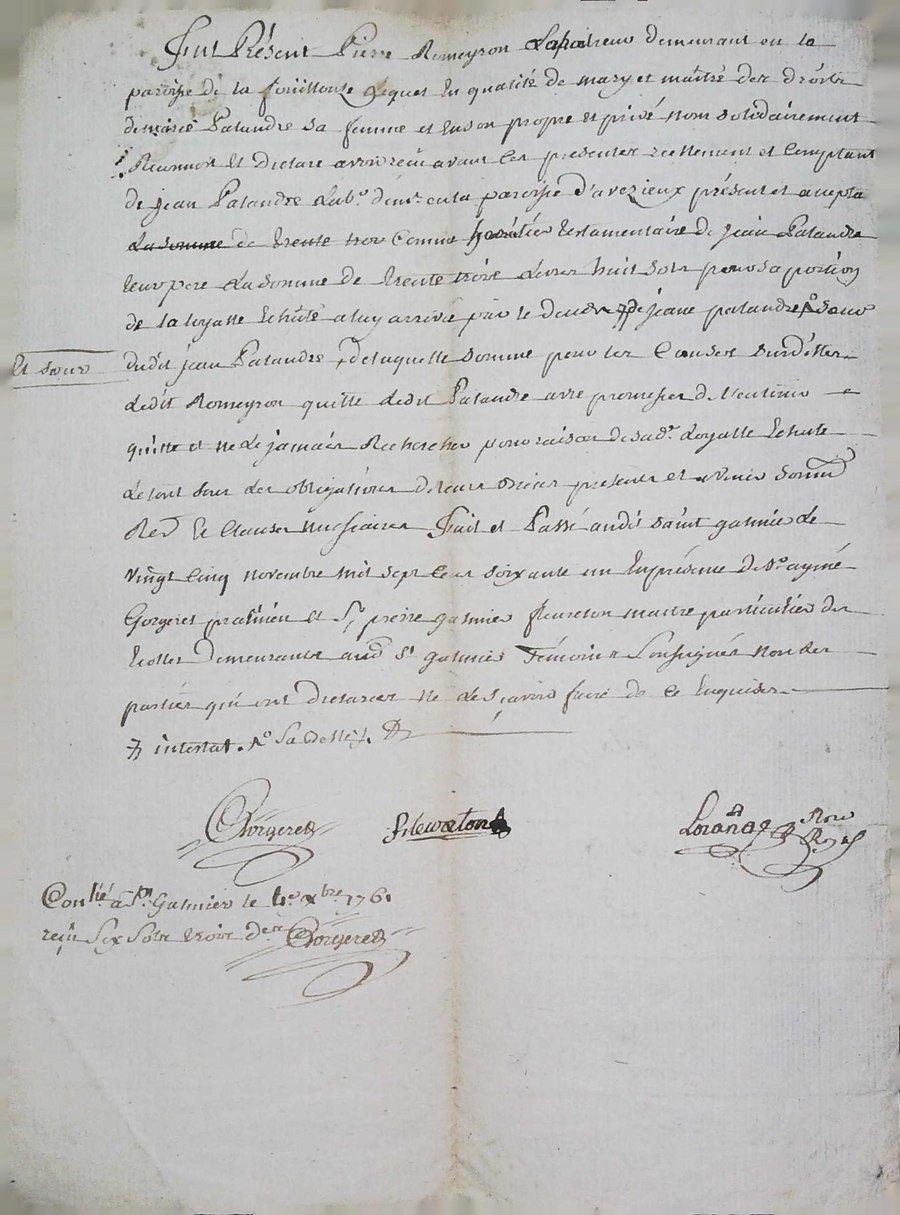 Fut Présent Pierre Romeyron demeurant en la
paroisse de la fouillouse Lequel En qualité de mary et maitre des droits
de Palandre sa femme et Enson propre et privé nom solidairement
Reconnoit Et Declare avoir reçu avant Ces presentes reellement et Comptant
de jean Palandre Lab.r dem.t en la paroisse d'avezieux présent et accepta
La somme de trente trois Comme héritier testamentaire de Jean Palandre
leur pere La somme de trente trois Livres huit sols pour sa portion
de la Loyalle Echute a luy arrivée par le deceds de jeane palandre
Et sœur
dudit jean Palandre, de laquelle somme pour les Causes Surdittes
Ledit Romeyron quitte ledit Palandre avec promesse de
quitte et ne le jamais Rechercher pour raison de sad.e Loyalle Echute
Le tout sous les obligations de leurs Biens presents et avenir
Et Clauses necessaires Fait et Passé audit saint galmier le
vingt Cinq novembre mil sept Cent soixante un En présence de S.r aymé
Gorgeret praticien et S.r pierre galmier fleureton maitre particulier des
demeurants aud. St galmier Témoins Soussignés non les
parties qui ont declarées ne le sçavoir faire de Ce Enquises
intestat.
Gorgeret
fileureton
Not.
Royal
Con.llé à St. Galmier le Xbre 1761
reçu Six Sols trois d.ers Gorgeret